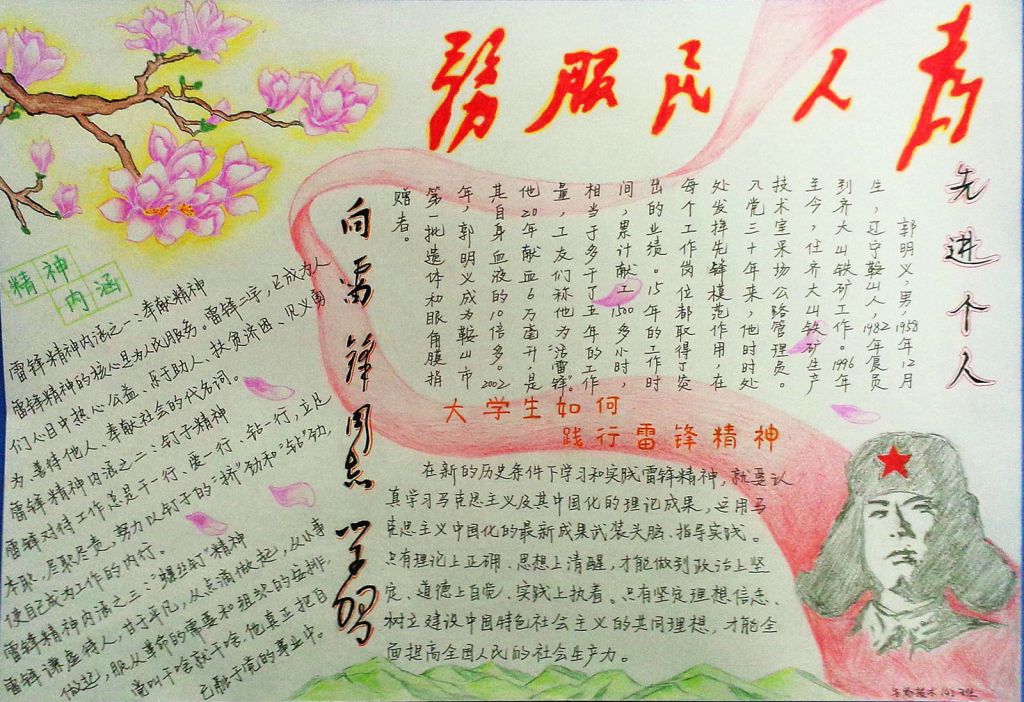 为人民服務
先进个人
郭明义,男,1958年12月
生,辽宁鞍山人,1982年复员
到齐大山铁矿工作。1996年
主今,任齐大山铁矿生产
技术室采场公路管理员。
入党三十年来,他时时处
处发挥先锋模范作用,在
每个工作岗位都取得了突
出的业绩。15年的工作时
间,累计献工1500多小时,
相当于多干了五年的工作
量,工友们称他为“活雷锋”。
他20年献血6万毫升,是
其自身血液的10倍多。2002
年,郭明义成为鞍山市
第一批遗体和眼角膜捐
赠者。
向雷锋同志学習
精神
内涵
雷锋精神内涵之一:奉献精神
雷锋精神的核心是为人民服务。雷锋二字,已成为人
们心目中热心公益、乐于助人、扶贫济困、见义勇
为、善待他人、奉献社会的代名词。
雷锋精神内涵之二:钉子精神
雷锋对待工作总是干一行、爱一行、钻一行,立足
本职,尽职尽责,努力以钉子的“挤”劲和“钻”劲,
使自己成为工作的内行。
雷锋精神内涵之三:“螺丝钉”精神
雷锋谦虚待人,甘于平凡,从点滴做起,从小事
做起,服从革命的需要和组织的安排,
党叫干啥就干啥,他真正把自
己融于党的事业中。
大学生如何
践行雷锋精神
在新的历史条件下学习和实践雷锋精神,就要认
真学习马克思主义及其中国化的理论成果,运用马
克思主义中国化的最新成果武装头脑、指导实践。
只有理论上正确、思想上清醒,才能做到政治上坚
定、道德上自觉、实践上执着。只有坚定理想信念、
树立建设中国特色社会主义的共同理想,才能全
面提高全国人民的社会生产力。